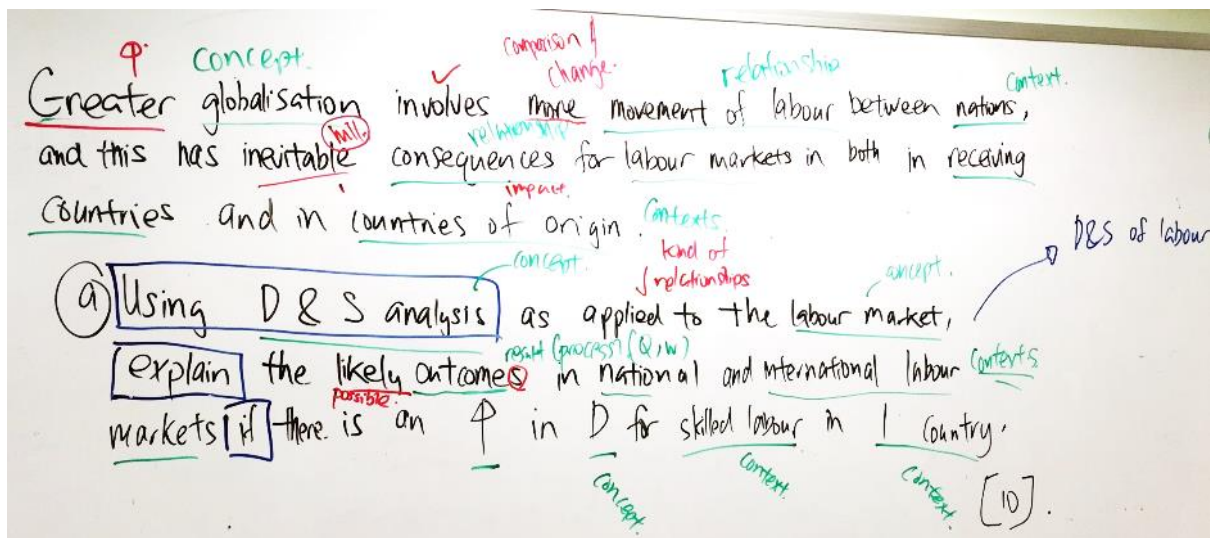 ↑ concept. comparison & change. relationship context.
Greater globalisation involves more movement of labour between nations,
inll. relationship
and this has inevitable consequences for labour markets in both in receiving
impact.
countries and in countries of origin. Contexts.
concept. kind of relationships concept. D&S of labour
(a) Using D & S analysis as applied to the labour market,
result (process) (Q, W)
explain the likely outcomes in national and international labour contexts
possible.
markets if there is an ↑ in D for skilled labour in 1 country.
concept context. context. [10].